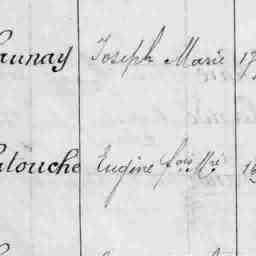 aunay Joseph Marie 1
atouche Eugène f.ois M.ie 1